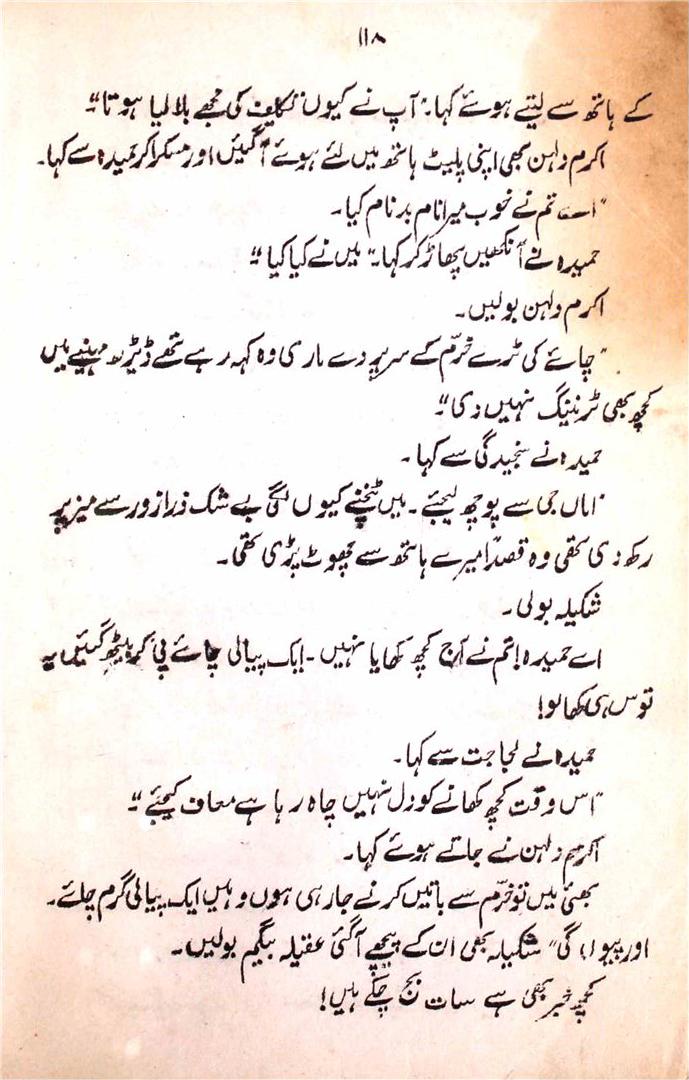 ۱۱۸
کے ہاتھ سے لیتے ہوئے کہا۔ "آپ نے کیوں تکلیف کی مجھے بلا لیا ہوتا"۔
اکرم دلہن بھی اپنی پلیٹ ہاتھ میں لئے ہوئے آگئیں اور مسکرا کر حمیدہ سے کہا۔
"اے تم نے خوب میرا نام بدنام کیا۔
حمیدہ نے آنکھیں پھاڑ کر کہا۔ "میں نے کیا کیا"۔
اکرم دلہن بولیں۔
"چائے کی ٹرے خرّم کے سر پر دے ماری وہ کہہ رہے تھے ڈیڑھ مہینے میں
کچھ بھی ٹرننیگ نہیں دی"۔
حمیدہ نے سنجیدگی سے کہا۔
"اماں جی سے پوچھ لیجئے۔ میں ٹپخنے کیوں لگی بے شک ذرا زور سے میز پر
رکھ دی تھی وہ قصداً میرے ہاتھ سے چھوٹ پڑی تھی۔
شکیلہ بولی۔
اے حمیدہ! تم نے آج کچھ کھایا نہیں۔ ایک پیالی چائے پی کر بیٹھ گئیں یہ
توس ہی کھالو!
حمیدہ نے لجاجت سے کہا۔
"اس وقت کچھ کھانے کو دل نہیں چاہ رہا ہے معاف کیجئے"۔
اکرم دلہن نے جاتے ہوئے کہا۔
بھئی میں تو خرّم سے باتیں کرنے جا رہی ہوں وہیں ایک پیالی گرم چائے۔
اور پیوں گی" شکیلہ بھی ان کے پیچھے آگئی عقیلہ بیگم بولیں۔
کچھ خبر بھی ہے سات بج چکے ہیں!